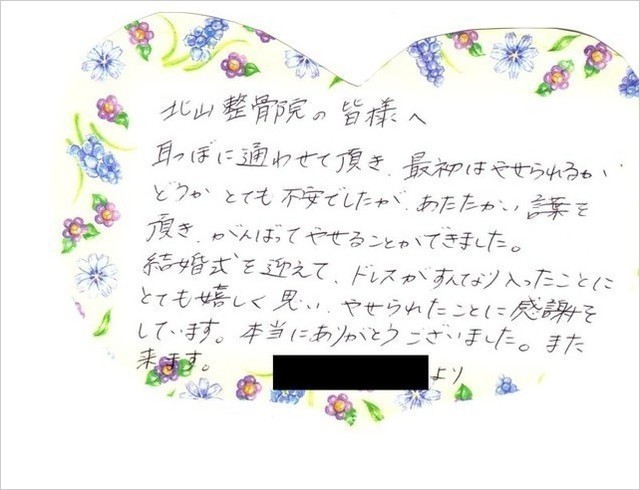 北山整骨院の皆様へ
耳つぼに通わせて頂き、最初はやせられるか
どうか とても 不安でしたが、あたたかい 言葉を
頂き、がんばって やせることができました。
結婚式を迎えて、ドレスがすんなり入ったことに
とても嬉しく思い、やせられたことに感謝を
しています。本当にありがとうございました。また
来ます。
より